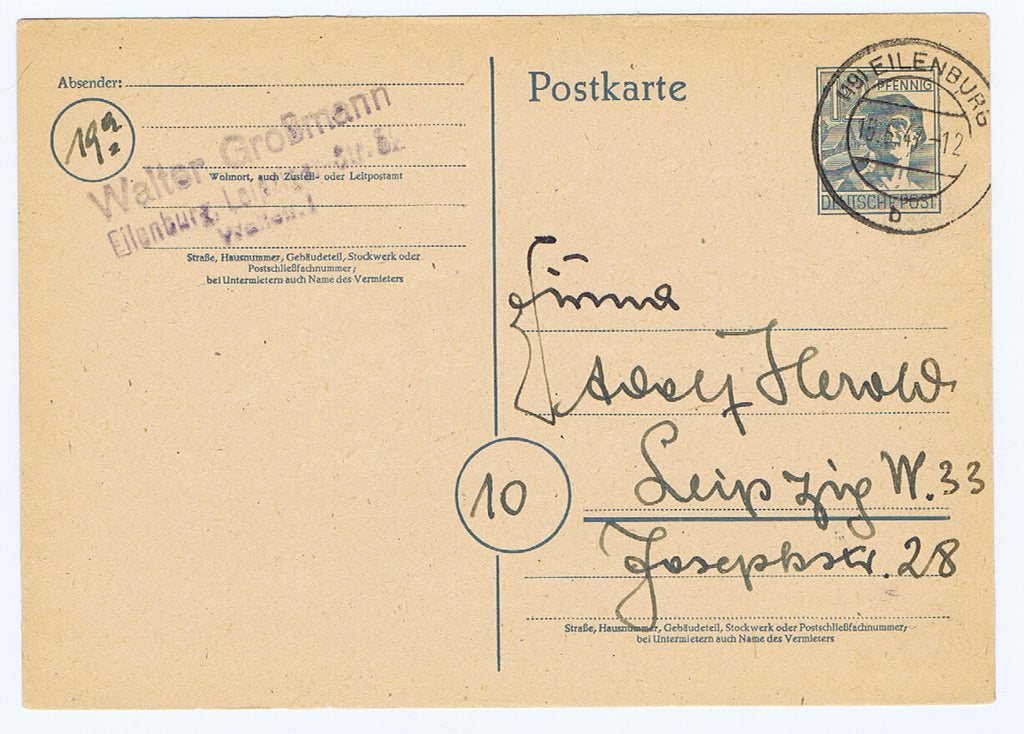 Absender:
19a
Walter Großmann
Wohnort, auch Zustell- oder Leitpostamt
Eilenburg, Str.
Straße, Hausnummer, Gebäudeteil, Stockwerk oder
Postschließfachnummer;
bei Untermietern auch Name des Vermieters
Postkarte
(19) EILENBURG
PFENNIG
-12
DEUTSCHE POST
b
Firma
Adolf Herold
10
Leipzig W. 33
Josephstr. 28
Straße, Hausnummer, Gebäudeteil, Stockwerk oder Postschließfachnummer;
bei Untermietern auch Name des Vermieters